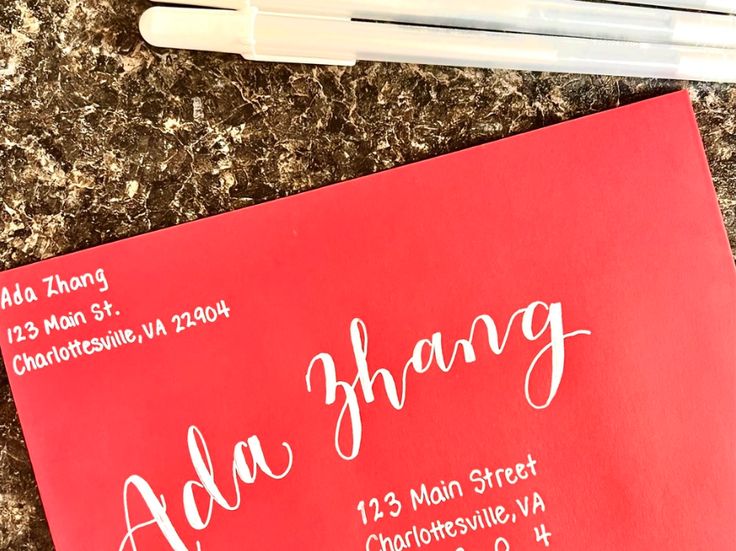 Ada Zhang
123 Main St.
Charlottesville, VA 22904
Ada Zhang
123 Main Street
Charlottesville, VA